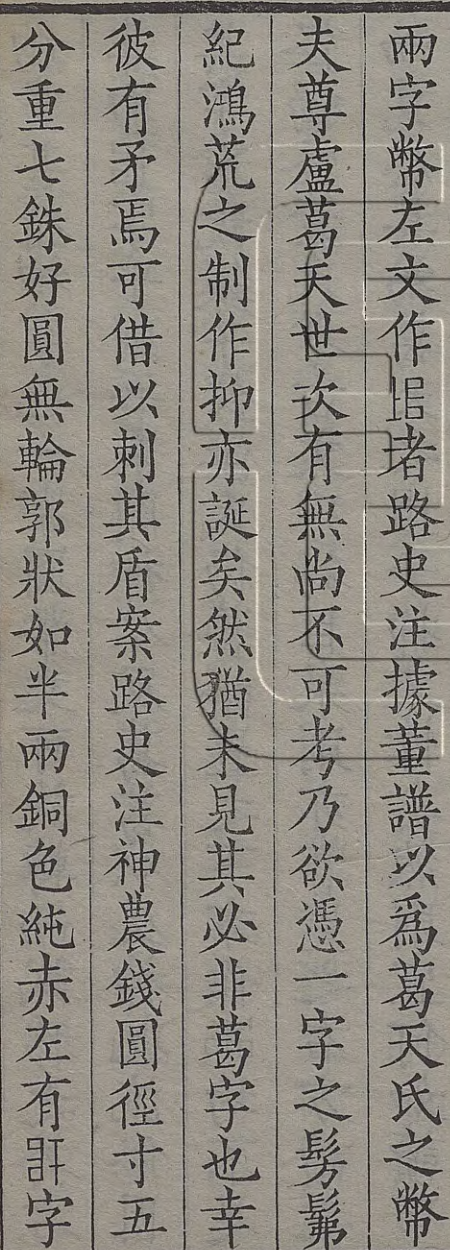 兩字幣左文作㫟者路史注據董譜以爲葛天氏之幣
夫尊盧葛天世次有無尚不可考乃欲憑一字之髣髴
紀鴻荒之制作抑亦誕矣然猶未見其必非葛字也幸
彼有矛焉可借以刺其盾案路史注神農錢圓徑寸五
分重七銖好圓無輪郭狀如半兩銅色純赤左有字